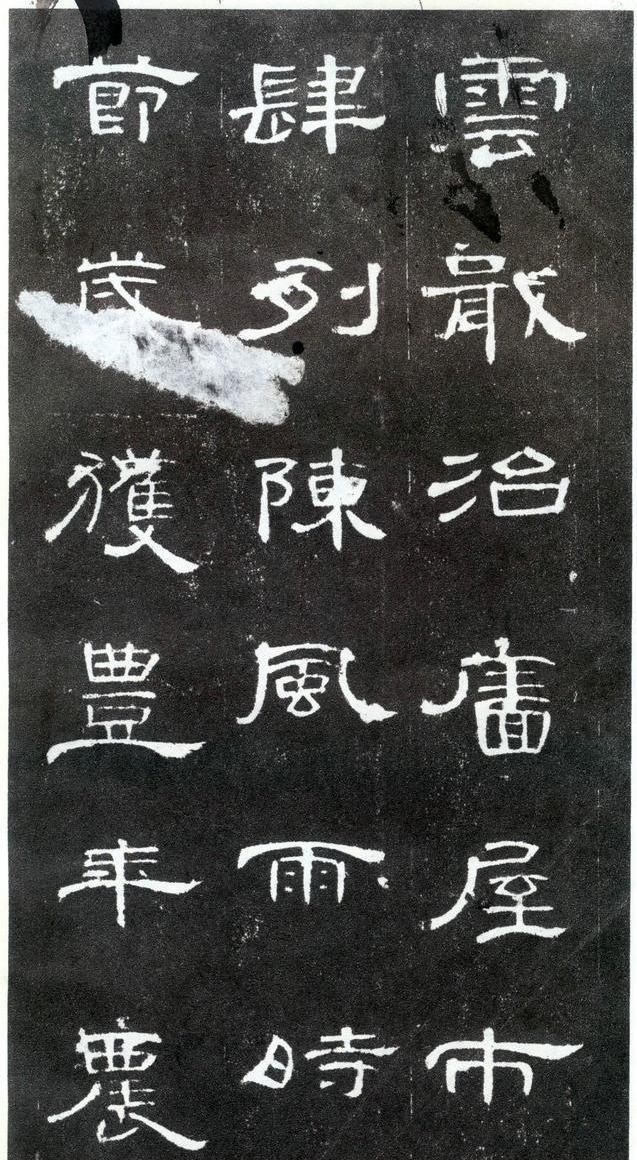 雲戢治廧屋市
肆列陳風雨時
節歲獲豐年農